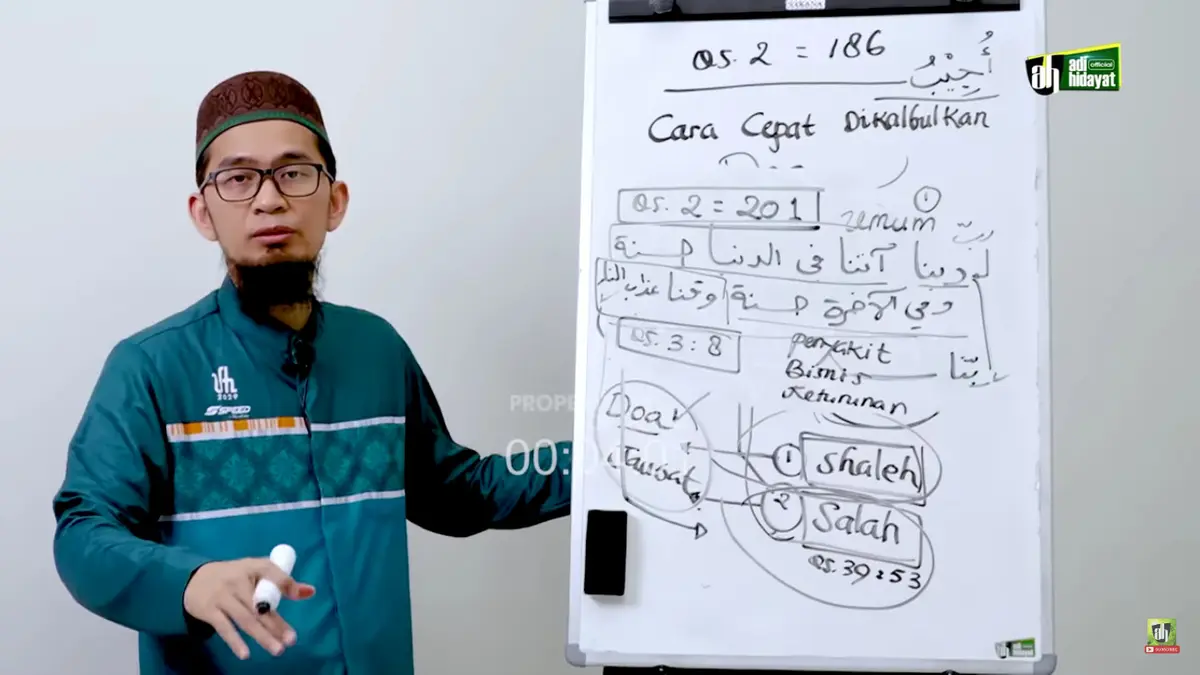 QS. 2 = 186 أُجِيْبُ
Cara Cepat Dikalbulkan
QS. 2 = 201
umum
1
ربّ
ربنا آتنا في الدنيا حسنة
وفي الآخرة حسنة وقنا عذاب النار
QS. 3 : 8
Penyakit
Bisnis
Keturunan
ربّنا
Doa
Taubat
1 Shaleh
2 Salah
QS. 39 : 53
adi hidayat official
ah
2029
SPEED
PROPE
00:0